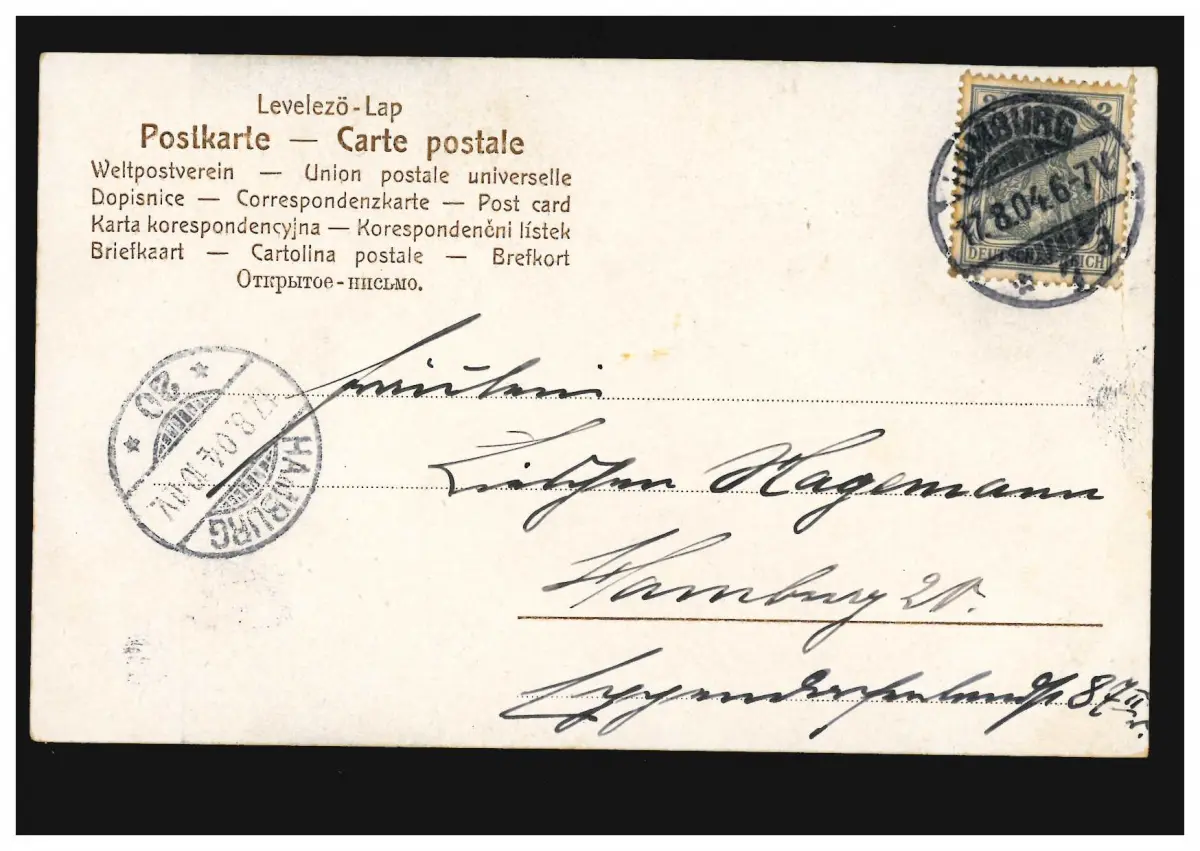 Levelező-Lap
Postkarte — Carte postale
Weltpostverein — Union postale universelle
Dopisnice — Correspondenzkarte — Post card
Karta korespondencyjna — Korespondenčni lístek
Briefkaart — Cartolina postale — Brefkort
Открытое-письмо.
2 2
DEUTSCHES REICH
HAMBURG
17.8.04.6-7V.
* 1 a
* 20 *
17.8.04 10-11V.
HAMBURG
Fräulein
Lieschen Hagemann
Hamburg 20.
Eppendorferlandstr 87 II
r.